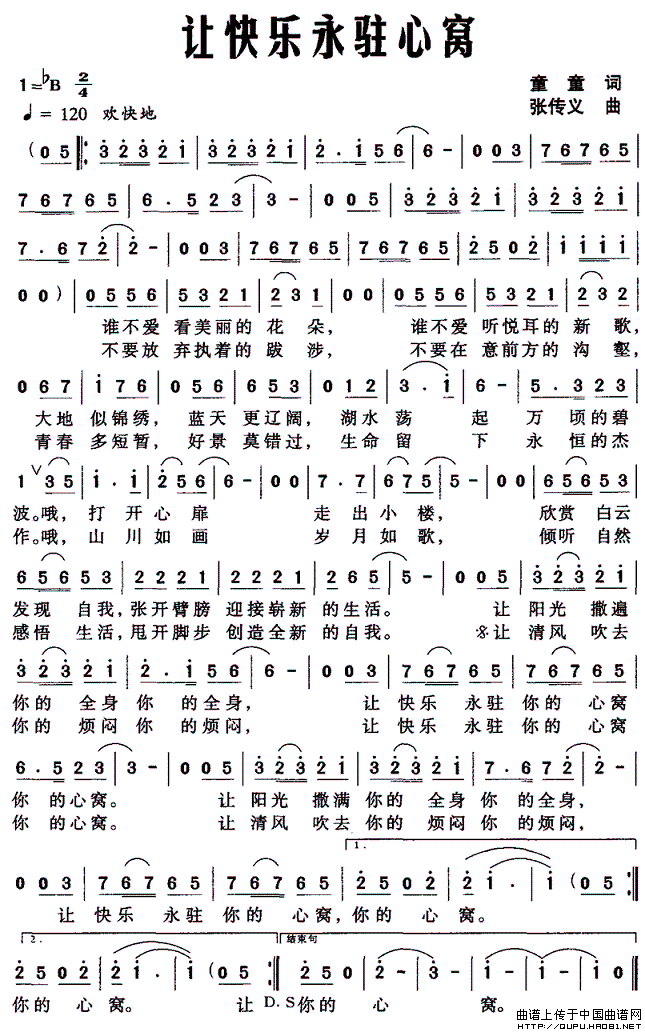 让快乐永驻心窝
1=♭B 2/4
童童 词
♩= 120 欢快地
张传义 曲
(0 5 ‖: 3 2 3 2 1 | 3 2 3 2 1 | 2 . 1 5 6 | 6 - | 0 0 3 | 7 6 7 6 5 |
7 6 7 6 5 | 6 . 5 2 3 | 3 - | 0 0 5 | 3 2 3 2 1 | 3 2 3 2 1 |
7 . 6 7 2 | 2 - | 0 0 3 | 7 6 7 6 5 | 7 6 7 6 5 | 2 5 0 2 | 1 1 1 1 |
0 0 ) | 0 5 5 6 | 5 3 2 1 | 2 3 1 | 0 0 | 0 5 5 6 | 5 3 2 1 | 2 3 2 |
谁不爱 看美丽的 花 朵, 谁不爱 听悦耳的 新 歌,
不要放 弃执着的 跋 涉, 不要在 意前方的 沟 壑,
0 6 7 | 1 7 6 | 0 5 6 | 3 6 5 | 0 1 2 | 3 . 1 | 6 - | 5 . 3 2 3 |
大地 似锦绣, 蓝天 更辽阔, 湖水 荡 起 万 顷的碧
青春 多短暂, 好景 莫错过, 生命 留 下 永 恒的杰
1 ∨ 3 5 | 1 . 1 | 2 5 6 | 6 - | 0 0 | 7 . 7 | 6 7 5 | 5 - | 0 0 | 6 5 6 5 3 |
波。哦, 打 开 心 扉 走 出 小 楼, 欣赏 白云
作。哦, 山 川 如 画 岁 月 如 歌, 倾听 自然
6 5 6 5 3 | 2 2 2 1 | 2 2 2 1 | 2 6 5 | 5 - | 0 0 5 | 3 2 3 2 1 |
发现 自我, 张开臂膀 迎接崭新 的生活。 让 阳光 撒遍
感悟 生活, 甩开脚步 创造全新 的自我。 𝄋让 清风 吹去
3 2 3 2 1 | 2 . 1 5 6 | 6 - | 0 0 3 | 7 6 7 6 5 | 7 6 7 6 5 |
你的 全身 你 的 全身, 让 快乐 永驻 你的 心窝
你的 烦闷 你 的烦闷, 让 快乐 永驻 你的 心窝
6 . 5 2 3 | 3 - | 0 0 5 | 3 2 3 2 1 | 3 2 3 2 1 | 7 . 6 7 2 | 2 - |
你 的心窝。 让 阳光 撒满 你的 全身 你 的全身,
你 的心窝。 让 清风 吹去 你的 烦闷 你 的烦闷,
1.
0 0 3 | 7 6 7 6 5 | 7 6 7 6 5 | 2 5 0 2 | 2 1 . | 1 (0 5 :‖
让 快乐 永驻 你的 心窝, 你的 心 窝。
2. 结束句
2 5 0 2 | 2 1 . 1 | 1 (0 5 :‖ 2 5 0 2 | 2 1 - | 1 - | 1 0 ‖
你的 心 窝。 让 D.S 你的 心 窝。
曲谱上传于中国曲谱网
HTTP://QUPU.HAO81.NET